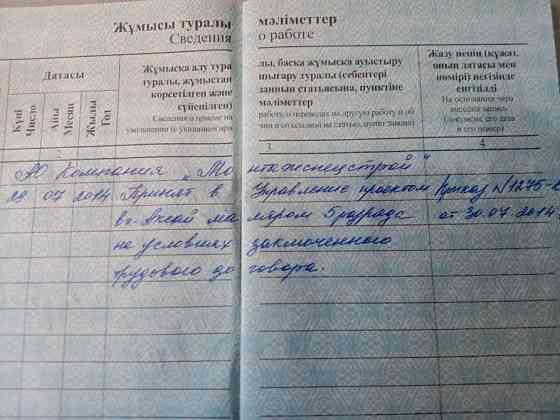 Жұмысы туралы мәліметтер
Сведения о работе
Датасы
Күні
Число
Айы
Месяц
Жылы
Год
Жұмысқа алу тура
туралы, жұмыстан
көрсетілген және
сүйенілген)
Сведения о приеме на
увольнении (с указанием при
лы, басқа жұмысқа ауыстыру
шығару туралы (себептері
заңның статьясына, пунктіне
мәліметтер
работу, о переводах на другую работу и об
чин и со ссылкой на статью, пункт закона)
Жазу ненің (құжат,
оның датасы мен
нөмірі) негізінде
енгізілді
На основании чего
внесена запись
(документ, его дата
и его номер)
2 3 4
АО Компания „Монтажспецстрой“
29 07 2014 Принят в Управление проектом Приказ №1275-к
в г. Аксай маляром 5 разряда от 30.07.2014
на условиях заключенного
трудового договора.